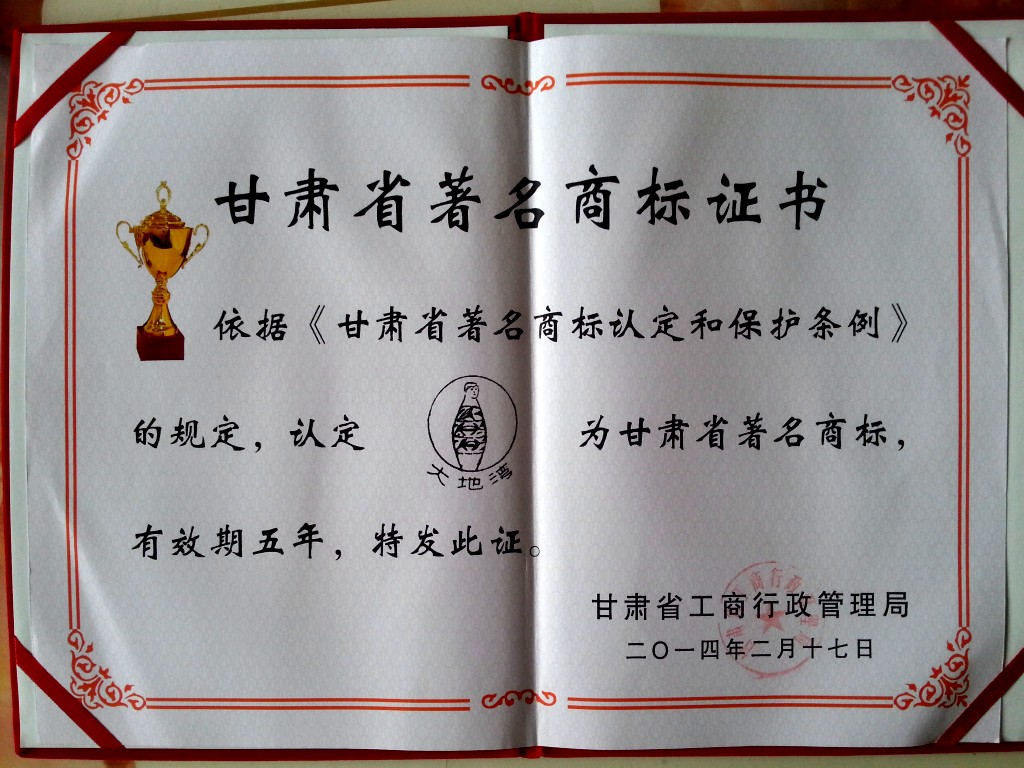 甘肃省著名商标证书
依据《甘肃省著名商标认定和保护条例》
的规定，认定 为甘肃省著名商标，
大地湾
有效期五年，特发此证。
甘肃省工商行政管理局
二〇一四年二月十七日